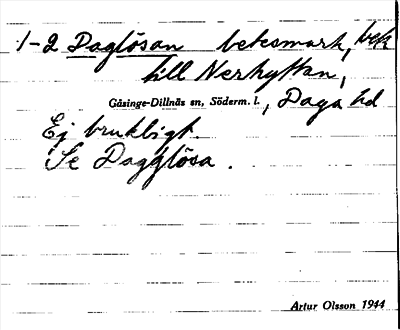 1-2 Daglösan betesmark, bek
till Nerhyttan,
Gåsinge-Dillnäs sn, Söderm. l., Daga hd
Ej brukligt.
Se Dagglösa.
Artur Olsson 1944